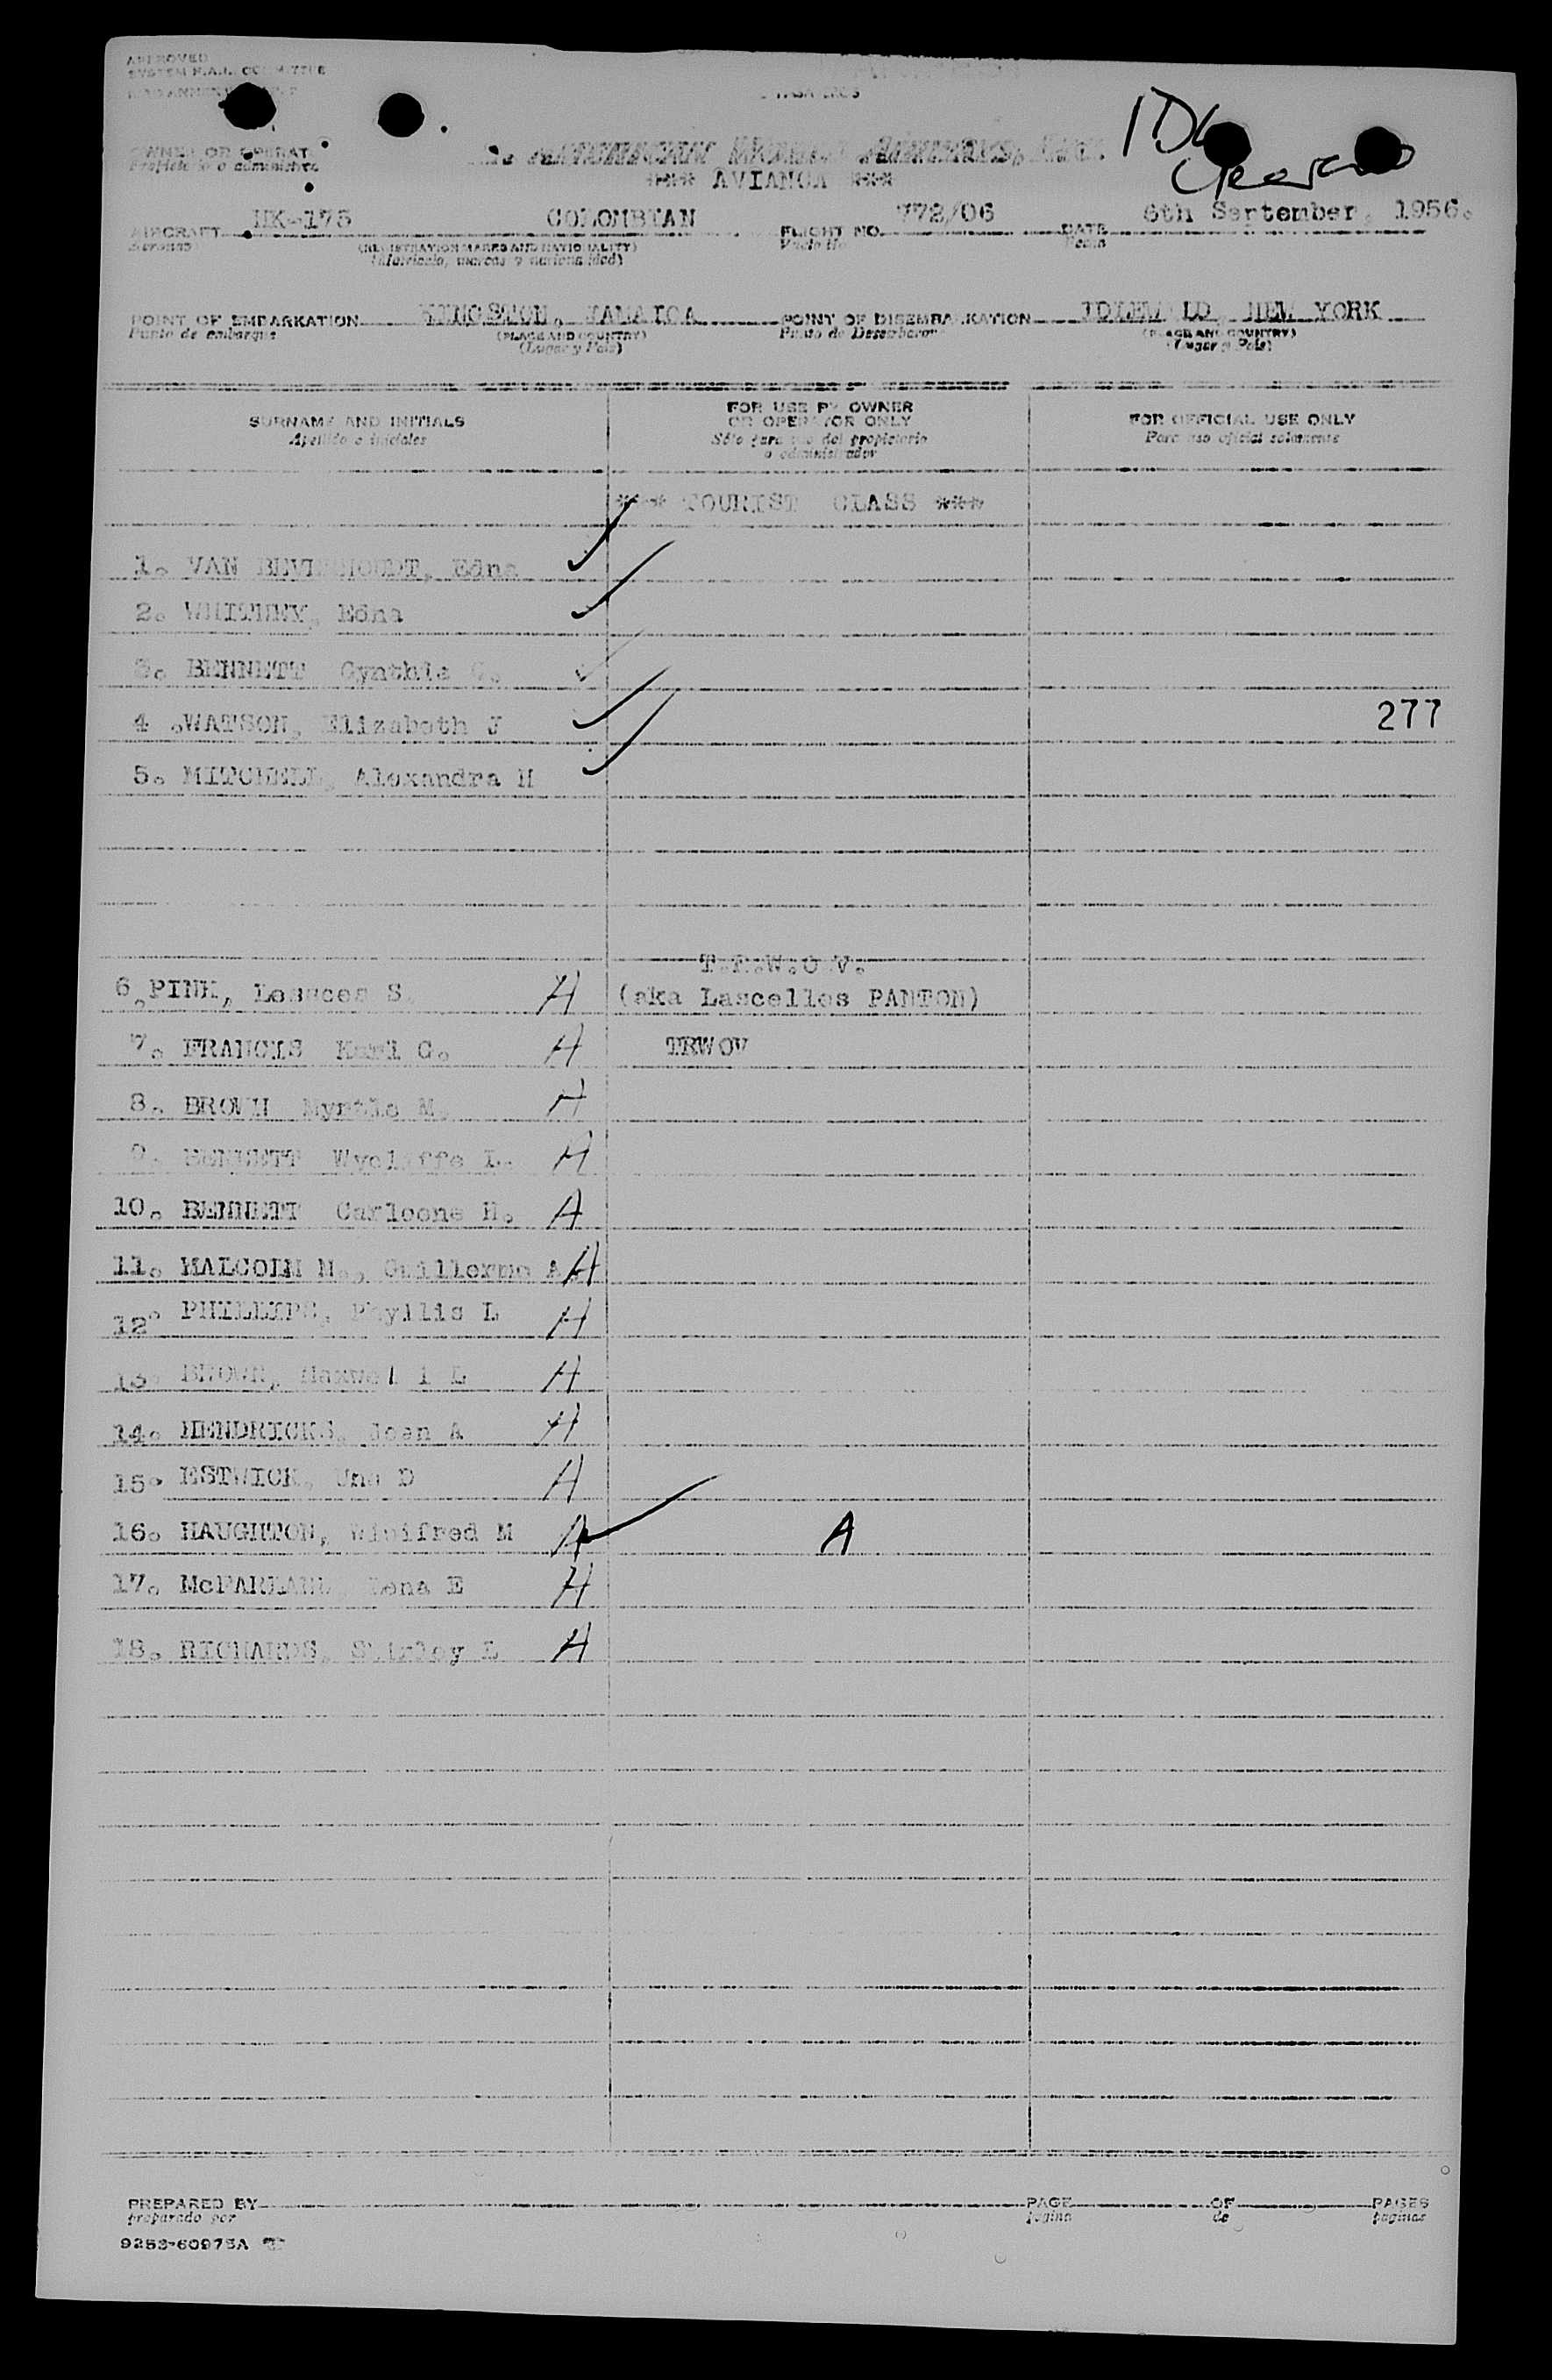 APPROVED
SYSTEM F.A.L. COMMITTEE
OWNER OR OPERAT
*** AVIANCA ***
AIRCRAFT HK-175 COLOMBIAN FLIGHT NO. 772/06 DATE 6th September, 1956.
(REGISTRATION MARKS AND NATIONALITY)
(Matricula, marcas y nacionalidad)
POINT OF EMBARKATION KINGSTON, JAMAICA POINT OF DISEMBARKATION IDLEWILD, NEW YORK
Punto de embarque (PLACE AND COUNTRY) Punto de Desembarque (PLACE AND COUNTRY)
(Lugar y Pais) (Lugar y Pais)
SURNAME AND INITIALS FOR USE BY OWNER OR OPERATOR ONLY FOR OFFICIAL USE ONLY
Apellido e iniciales Sólo para uso del propietario o administrador Para uso oficial solamente
*** TOURIST CLASS ***
1. VAN Edna
2. WHITNEY, Edna
3. BENNETT Cynthia
4. WATSON, Elizabeth J 277
5. MITCHELL, Alexandra H
T.R.W.O V.
6. PINK, S. H (aka Lascelles PANTON)
7. FRANCIS Karl G. H TRWOV
8. BROWN Myrtle M. H
9. BENNETT Wycliffe L. H
10. BENNETT Carleene H. H
11. MALCOLM M., Guillermo A. H
12. PHILLIPS, Phyllis L H
13. BROWN, Maxwell L H
14. HENDRICKS, Joan A H
15. ESTWICK, Una D H
16. HAUGHTON, Winifred M A
17. McFARLANE, Lena E H
18. RICHARDS, Shirley L H
PREPARED BY PAGE OF PAGES
preparado por pagina de paginas
9253-60975A